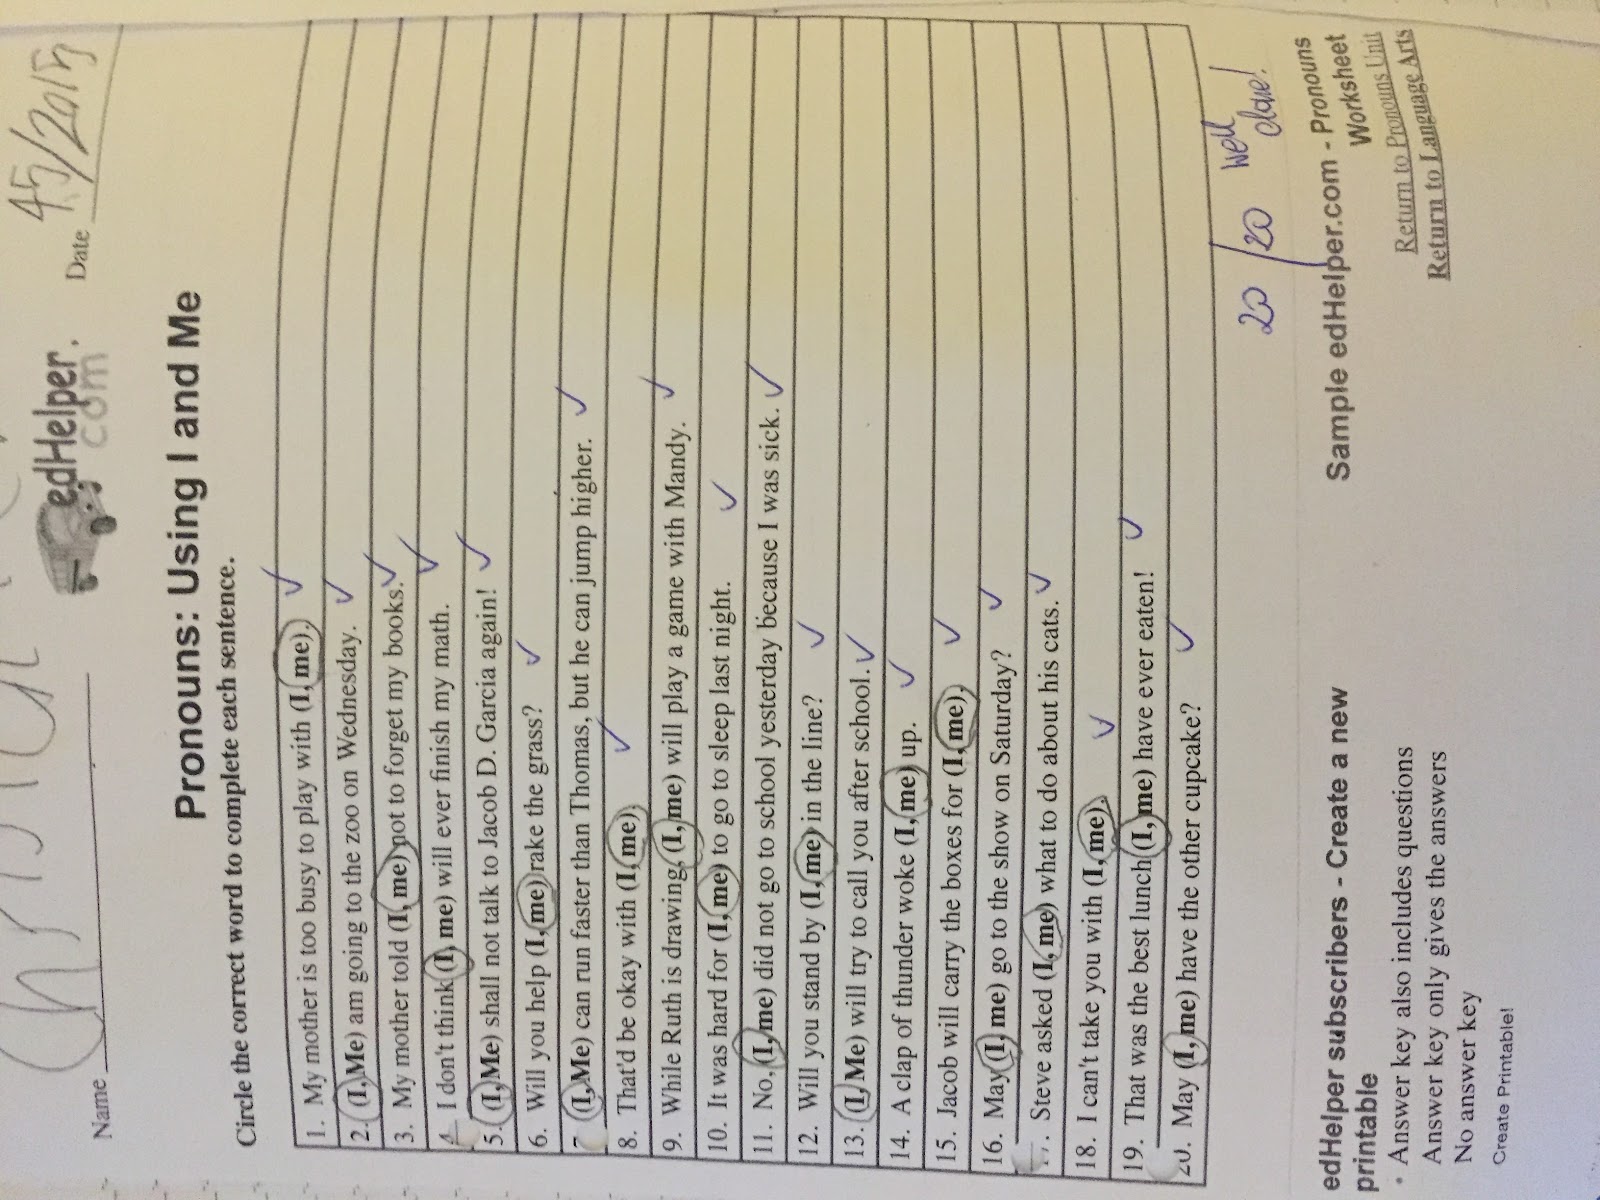 edHelper.
com
Name
Date 4/5/2015
Pronouns: Using I and Me
Circle the correct word to complete each sentence.
1. My mother is too busy to play with (I, me).
2. (I, Me) am going to the zoo on Wednesday.
3. My mother told (I, me) not to forget my books.
4. I don't think (I, me) will ever finish my math.
5. (I, Me) shall not talk to Jacob D. Garcia again!
6. Will you help (I, me) rake the grass?
7. (I, Me) can run faster than Thomas, but he can jump higher.
8. That'd be okay with (I, me).
9. While Ruth is drawing, (I, me) will play a game with Mandy.
10. It was hard for (I, me) to go to sleep last night.
11. No, (I, me) did not go to school yesterday because I was sick.
12. Will you stand by (I, me) in the line?
13. (I, Me) will try to call you after school.
14. A clap of thunder woke (I, me) up.
15. Jacob will carry the boxes for (I, me).
16. May (I, me) go to the show on Saturday?
17. Steve asked (I, me) what to do about his cats.
18. I can't take you with (I, me).
19. That was the best lunch (I, me) have ever eaten!
20. May (I, me) have the other cupcake?
20/20 Well done!
Sample edHelper.com - Pronouns
Worksheet
Return to Pronouns Unit
Return to Language Arts
edHelper subscribers - Create a new
printable
• Answer key also includes questions
Answer key only gives the answers
No answer key
Create Printable!